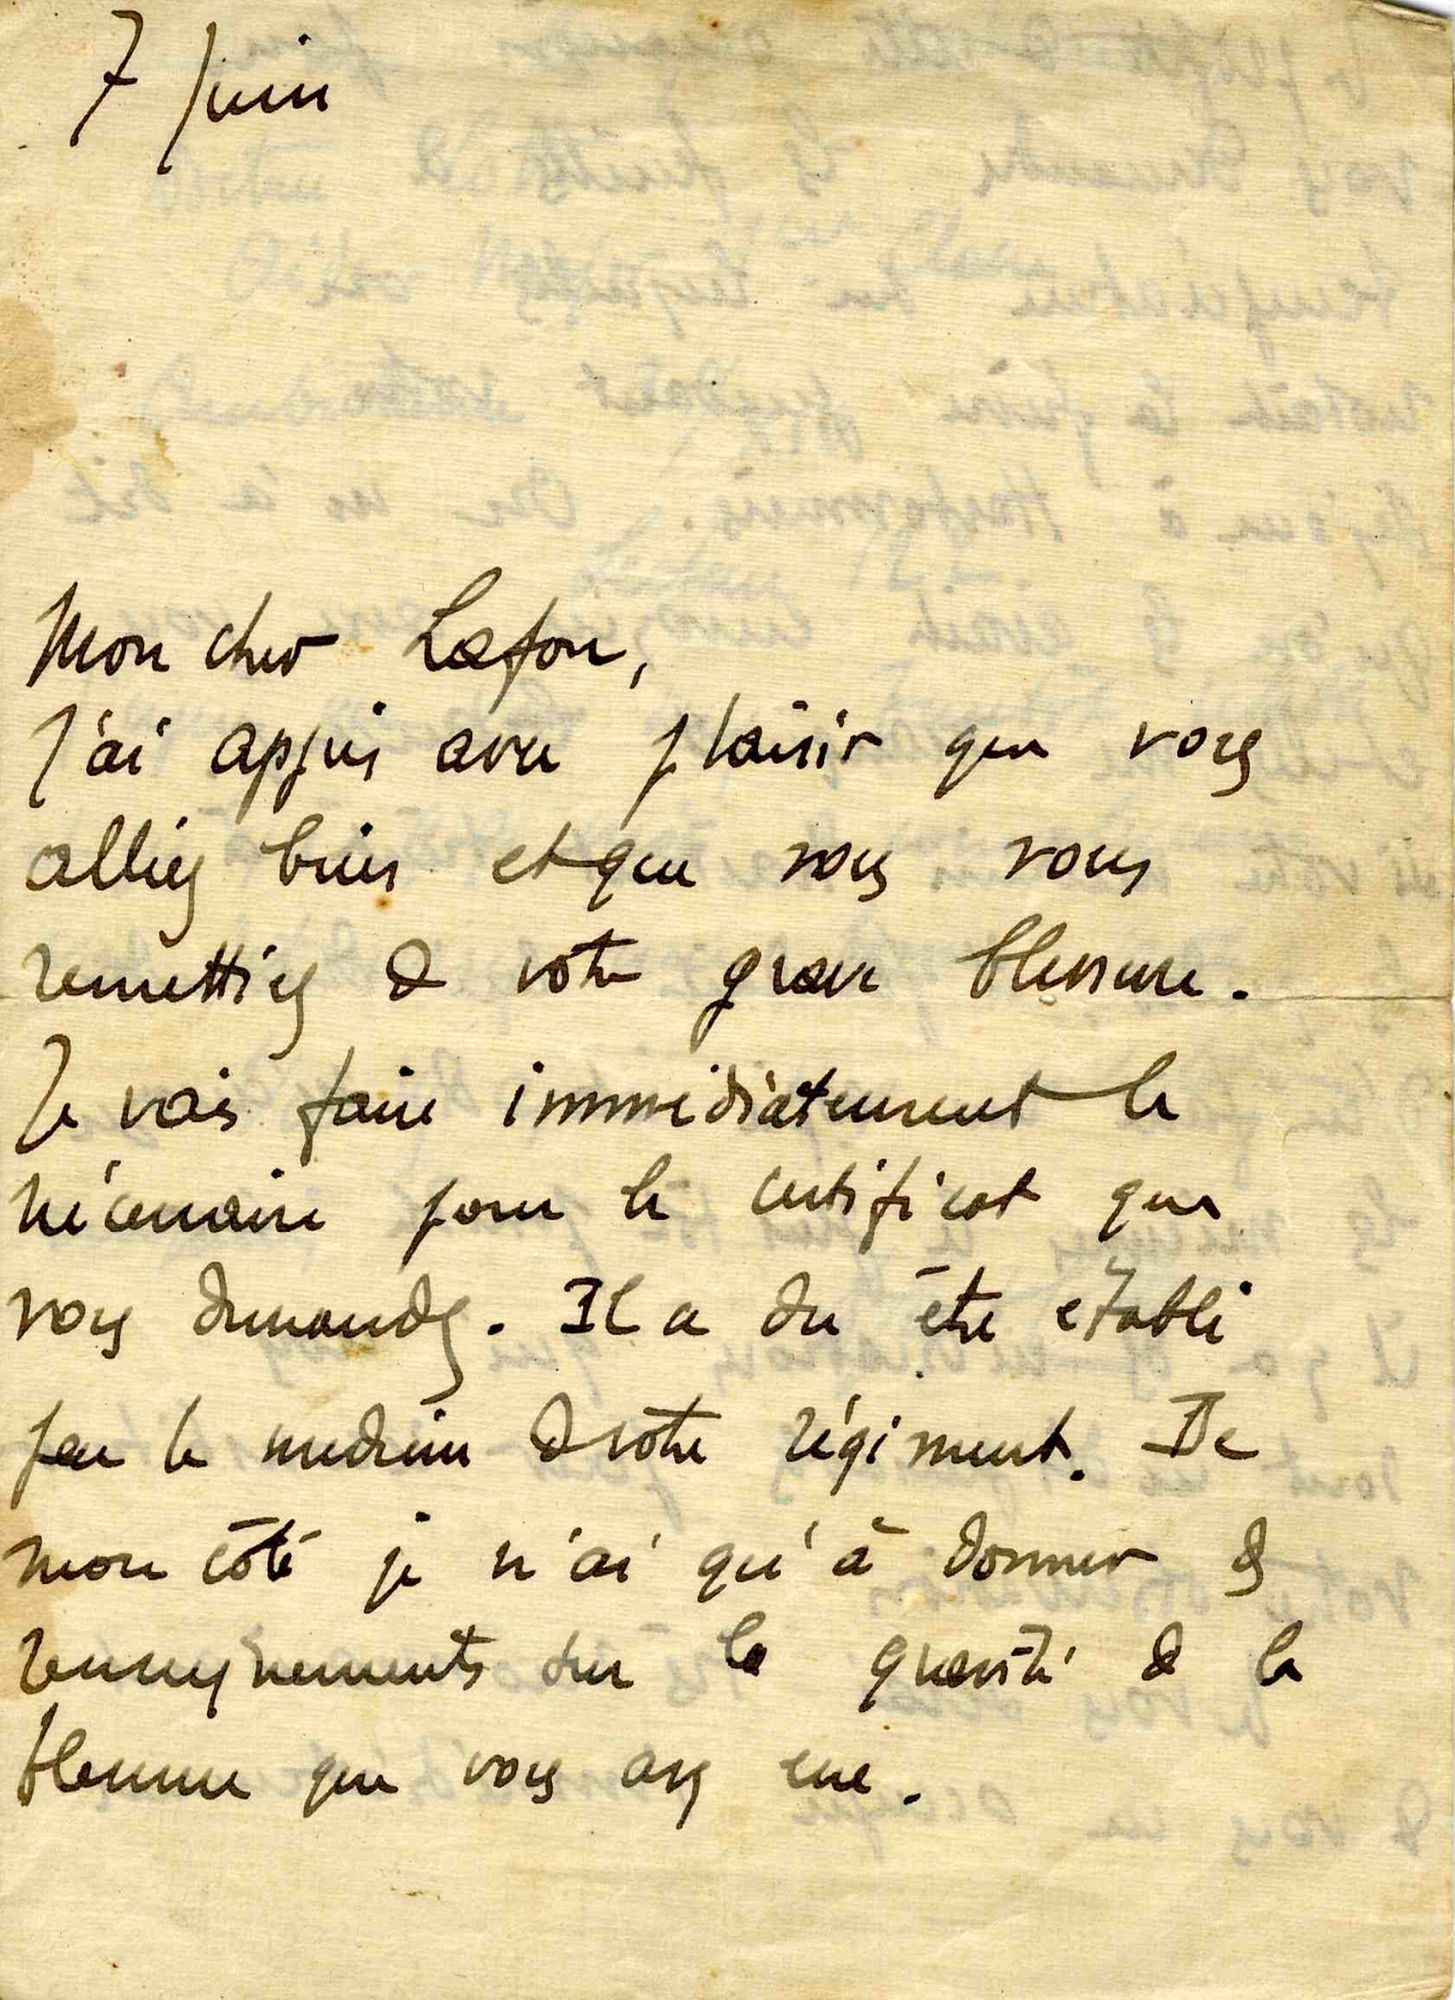 7 Juin
Mon cher Lafon,
J'ai appris avec plaisir que vous
alliez bien et que vous vous
remettiez de votre grave blessure.
Je vais faire immédiatement le
nécessaire pour le certificat que
vous demandez. Il a du être établi
par le medecin de votre régiment. De
mon côté je n'ai qu'à donner des
renseignements sur la gravité de la
blessure que vous avez eue.